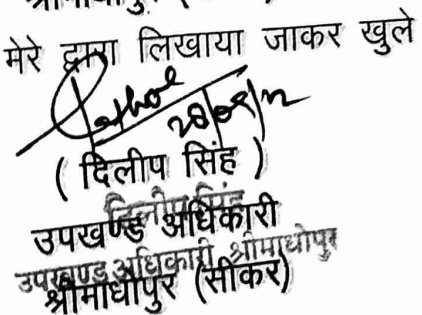 श्रीमाधोपुर
मेरे द्वारा लिखाया जाकर खुले
( दिलीप सिंह )
दिलीप सिंह
उपखण्ड अधिकारी
उपखण्ड अधिकारी श्रीमाधोपुर
श्रीमाधोपुर (सीकर)